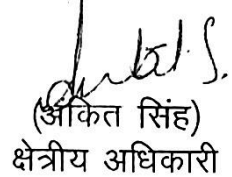 (अंकित सिंह)
क्षेत्रीय अधिकारी